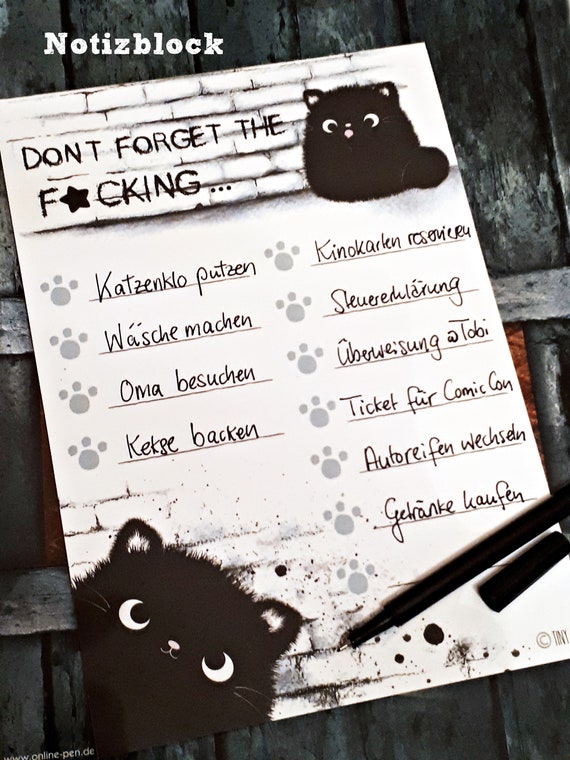 Notizblock
DONT FORGET THE
F★CKING...
Katzenklo putzen
Wäsche machen
Oma besuchen
Kekse backen
Kinokarten reservieren
Steuererklärung
Überweisung @Tobi
Ticket für ComicCon
Autoreifen wechseln
Getränke kaufen
© TINY
www.online-pen.de